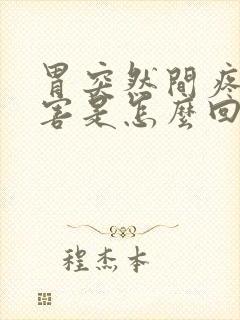 胃突然間疼
害是怎麼回
程杰本